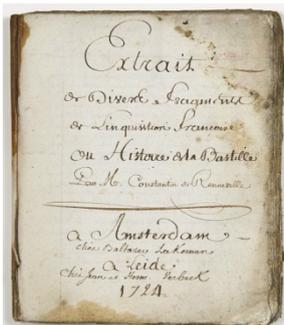 Extrait
de Divers Fragments
de Linquisition francoise
ou Histoire de la Bastille
Par Mr. Constantin de Renneville
a Amsterdam
chez Baltazar Lakeman
a Leide
chez Jean et Herm. Verbeek
1724